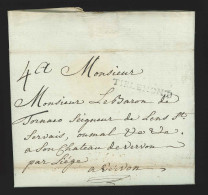 4a Monsieur
TIRLEMONT
Monsieur Le Baron de
Tornaco Seigneur de Lens St.
Servais, onmal &a &a,
a Son Chateau de Vervon
par Liége
a Vervon